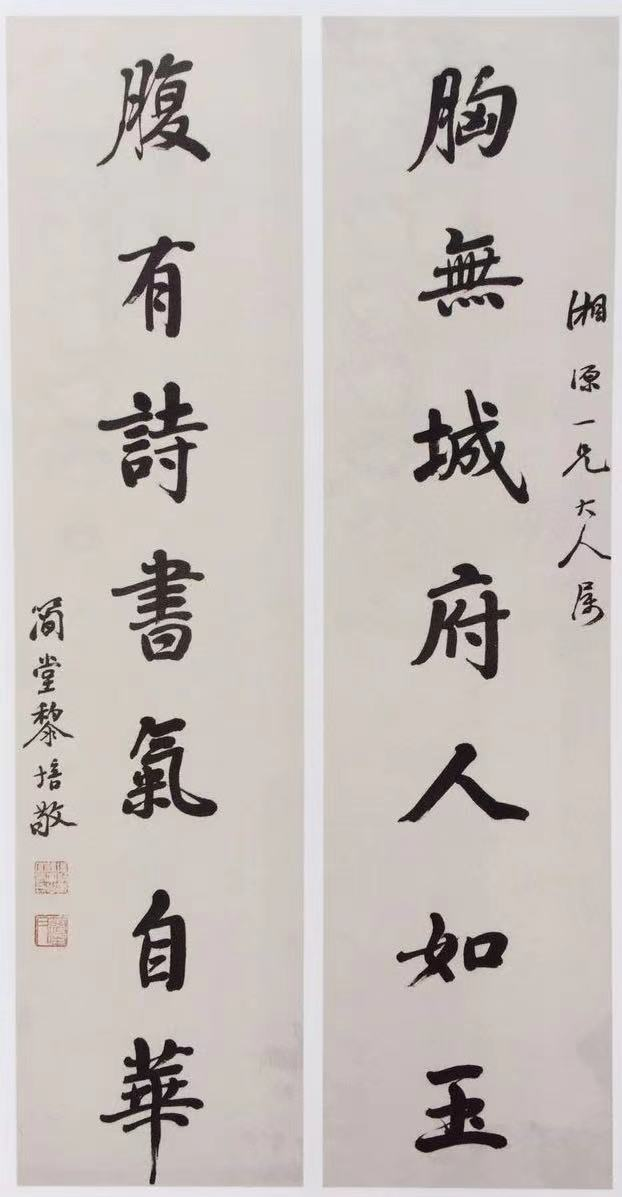 湘源一兄大人属
胸無城府人如玉
腹有詩書氣自華
簡堂黎培敬